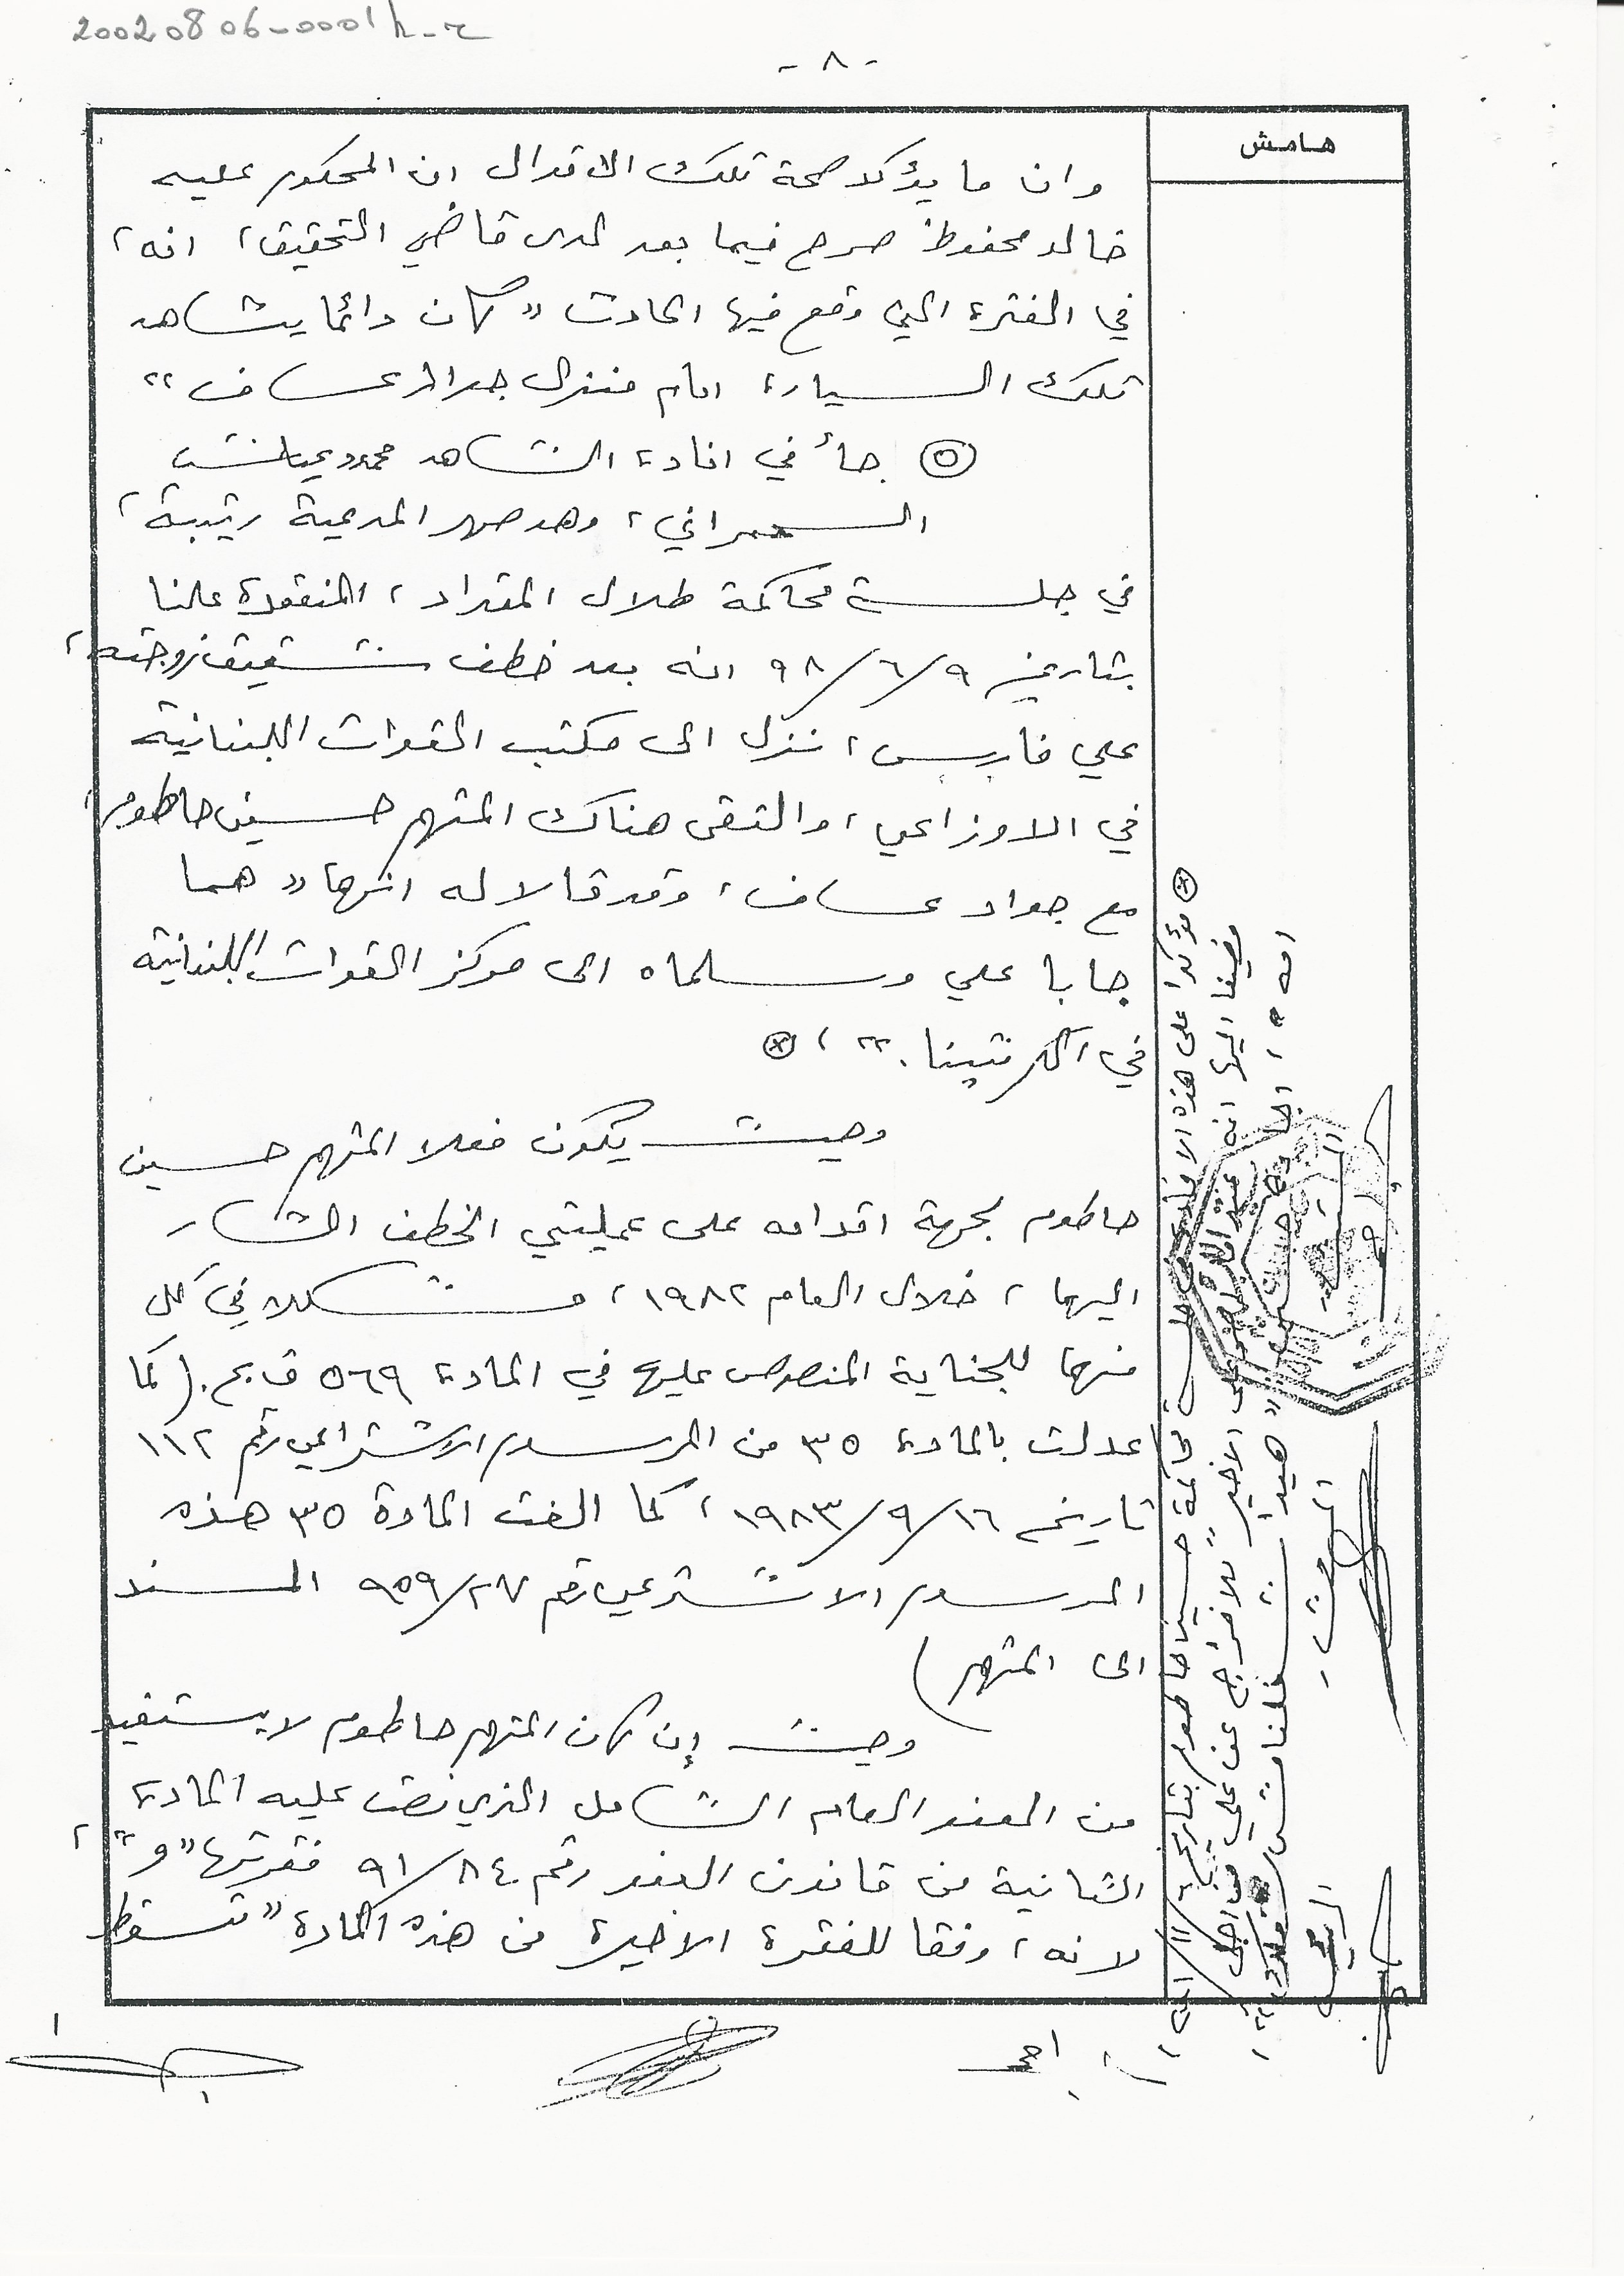 20020806-0001h-r
- ٨ -
هامش
وان ما يؤكد صحة تلك الاقوال ان المحكوم عليه
خالد محفوظ صرح فيما بعد لدى قاضي التحقيق، انه،
في الفترة التي وقع فيها الحادث « كان دائما يشاهد
تلك السيارة امام منزل جواد عساف »
⑤ جاء في افادة الشاهد محمود عياش
السمراني، وهو صهر المدعية رتيبة،
في جلسة محاكمة طلال المقداد، المنعقدة علنا
بتاريخ ٩/٦/٩٨ انه بعد خطف شقيق زوجته،
علي فارس، نزل الى مكتب القوات اللبنانية
في الاوزاعي، والتقى هناك المتهم حسين حاطوم،
مع جواد عساف، وقد قالا له انهما « هما
جابا علي وسلماه الى مركز القوات اللبنانية
في الكرنتينا. »، ⊗
وحيث يكون فعلا المتهم حسين
حاطوم لجهة اقدامه على عمليتي الخطف المشار
اليهما، خلال العام ١٩٨٢، مشكلا في كل
منهما للجناية المنصوص عليها في المادة ٥٦٩ ق.ع. (كما
عدلت بالمادة ٣٥ من المرسوم الاشتراعي رقم ١١٢
تاريخ ١٦/٩/١٩٨٣، كما الغت المادة ٣٥ هذه
المرسوم الاشتراعي رقم ٢٧/٩٥٩ المسند
الى المتهم)
وحيث إن كان المتهم حاطوم لا يستفيد
من العفو العام الشامل الذي نصت عليه المادة
الثانية من قانون العفو رقم ٨٤/٩١ فقرتها «و»،
لانه، وفقا للفقرة الاخيرة من هذه المادة «تسقط
⊗ مؤكدا على هذه الافادة في جلسة محاكمة حسين حاطوم بتاريخ
مضيفا اليها انه عند الاخير للافراج عن علي
انه، حسين « هيدا
المستشار
الرئيس
احمد